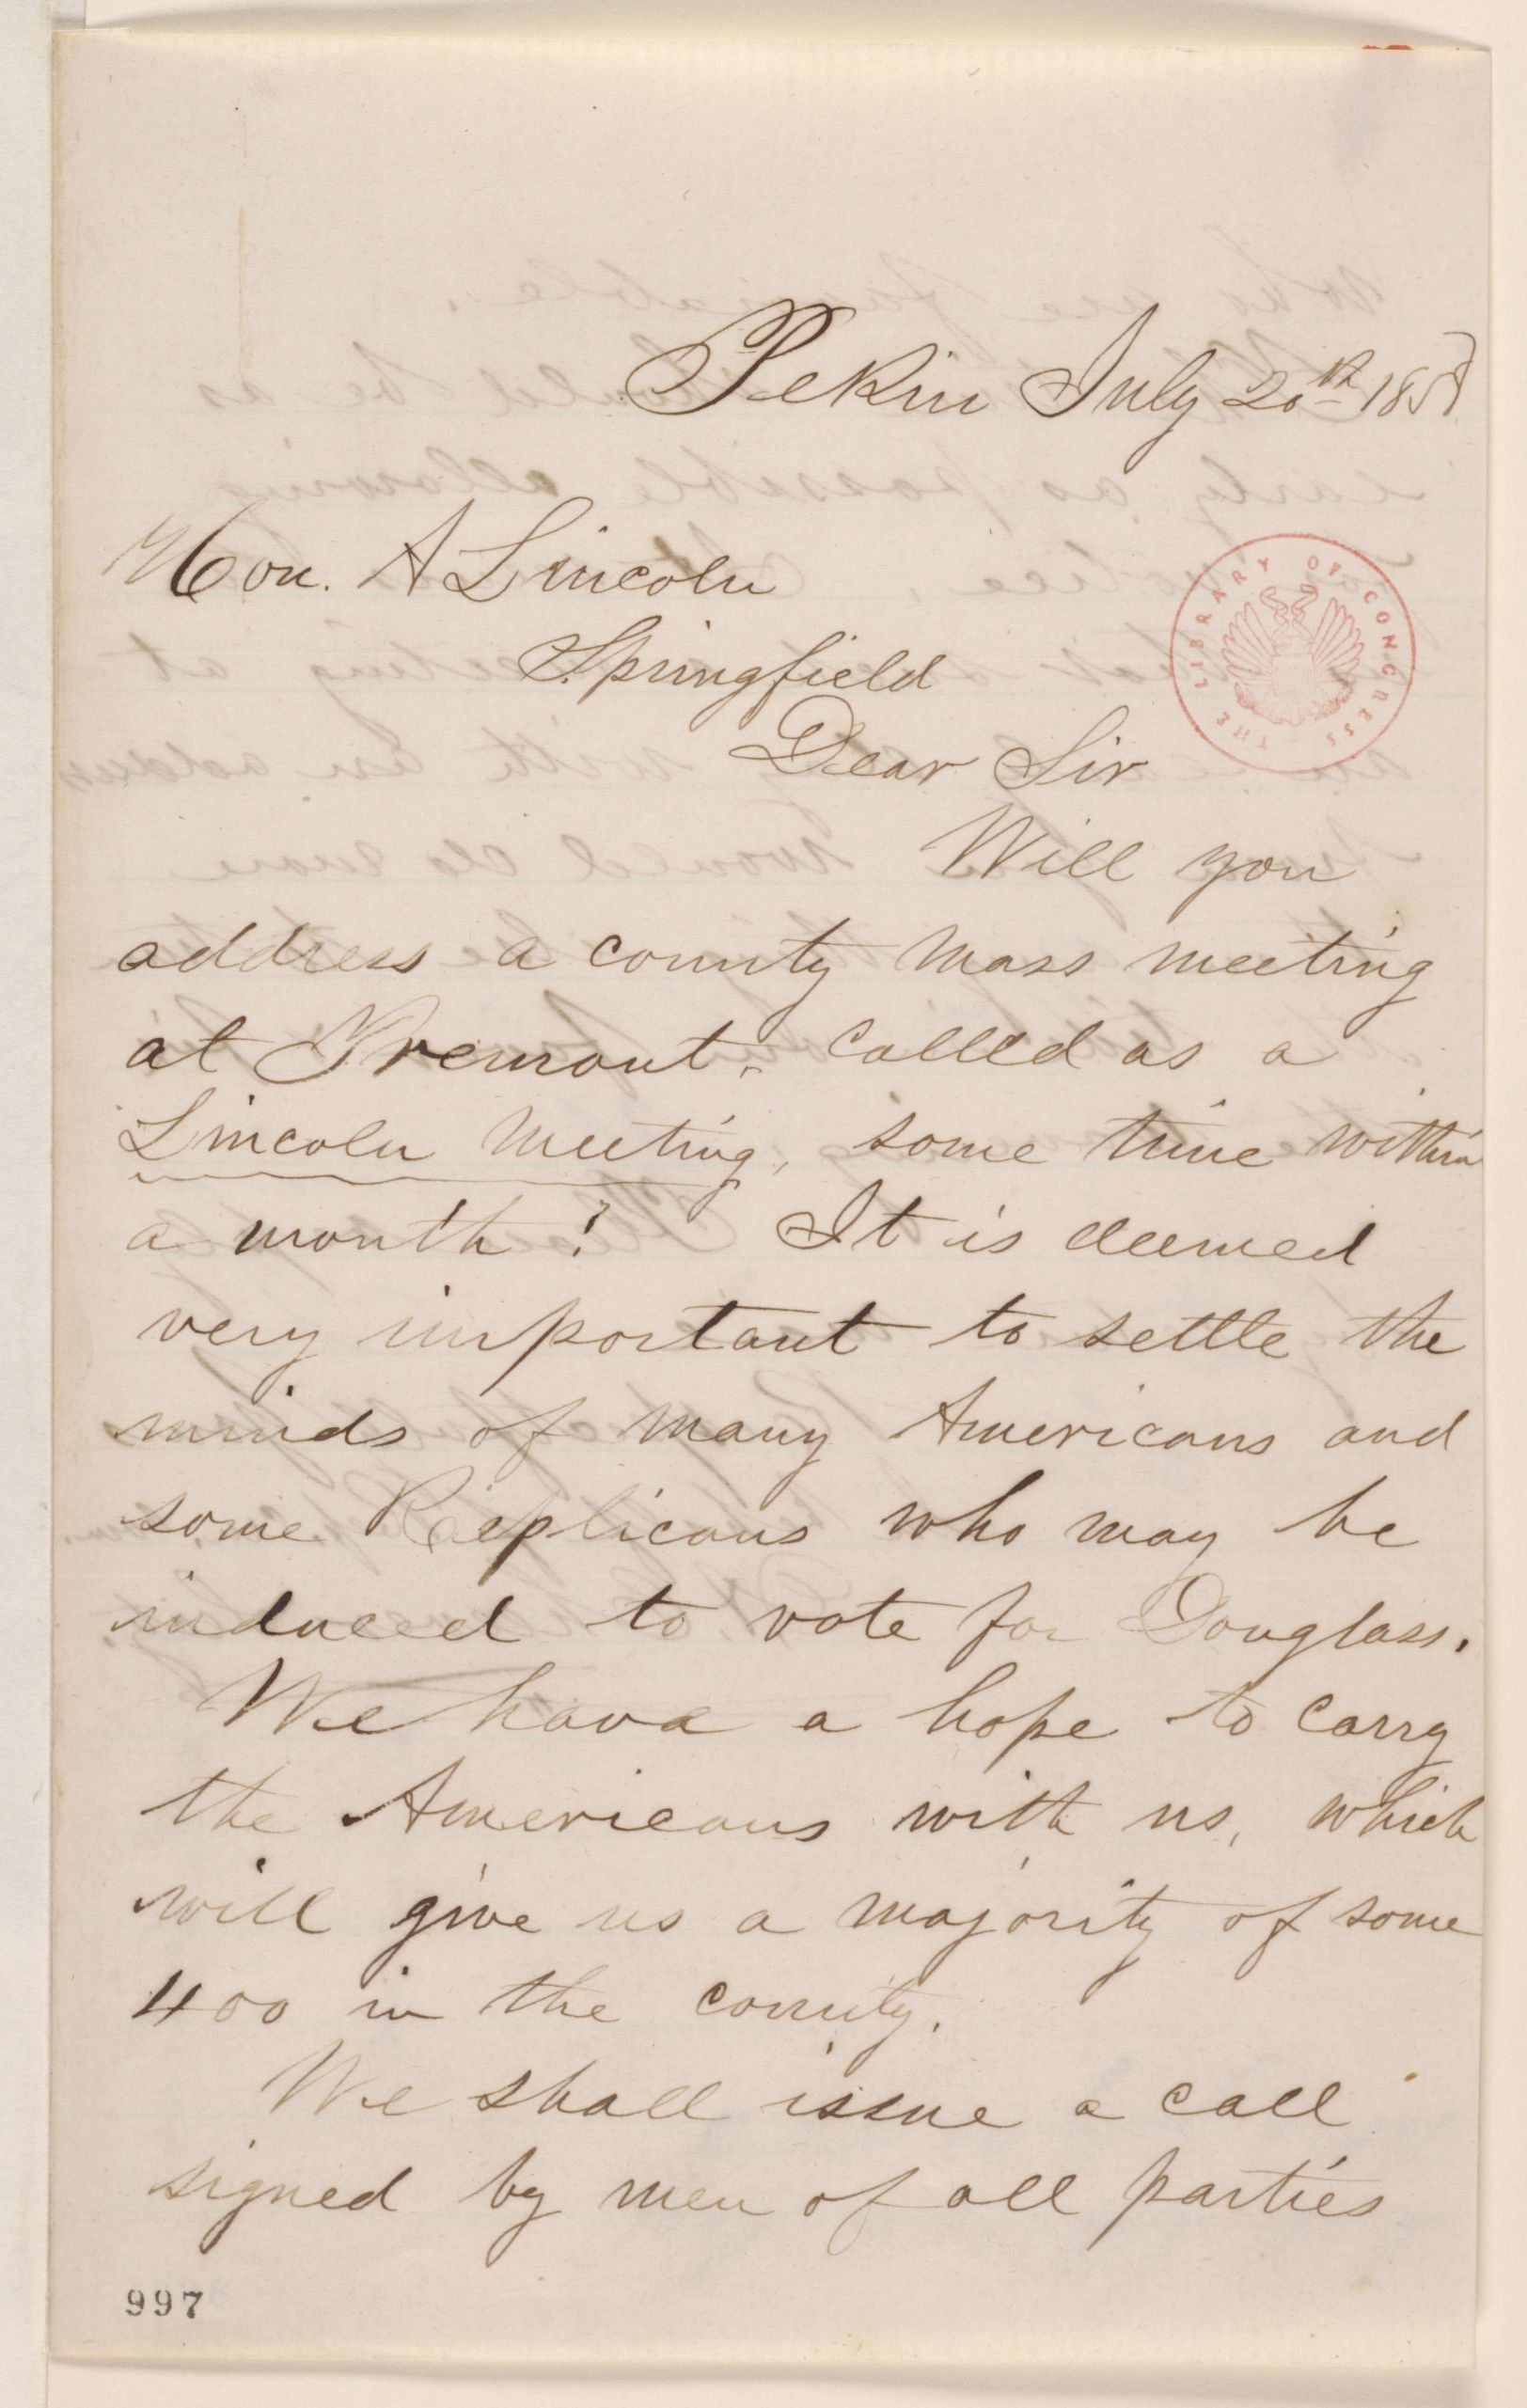 Pekin July 20th 1858
Hon. A Lincoln
Springfield
Dear Sir
Will you
address a county mass meeting
at Tremont, called as a
Lincoln meeting, some time within
a month? It is deemed
very important to settle the
minds of many Americans and
some Replicans who may be
induced to vote for Douglass.
We have a hope to carry
the Americans with us, which
will give us a majority of some
400 in the county.
We shall issue a call
signed by men of all parties
THE LIBRARY OF CONGRESS
997